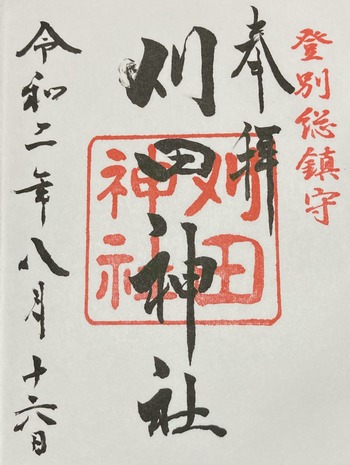 登別総鎮守
奉拝
刈田神社
刈田
神社
令和二年八月十六日